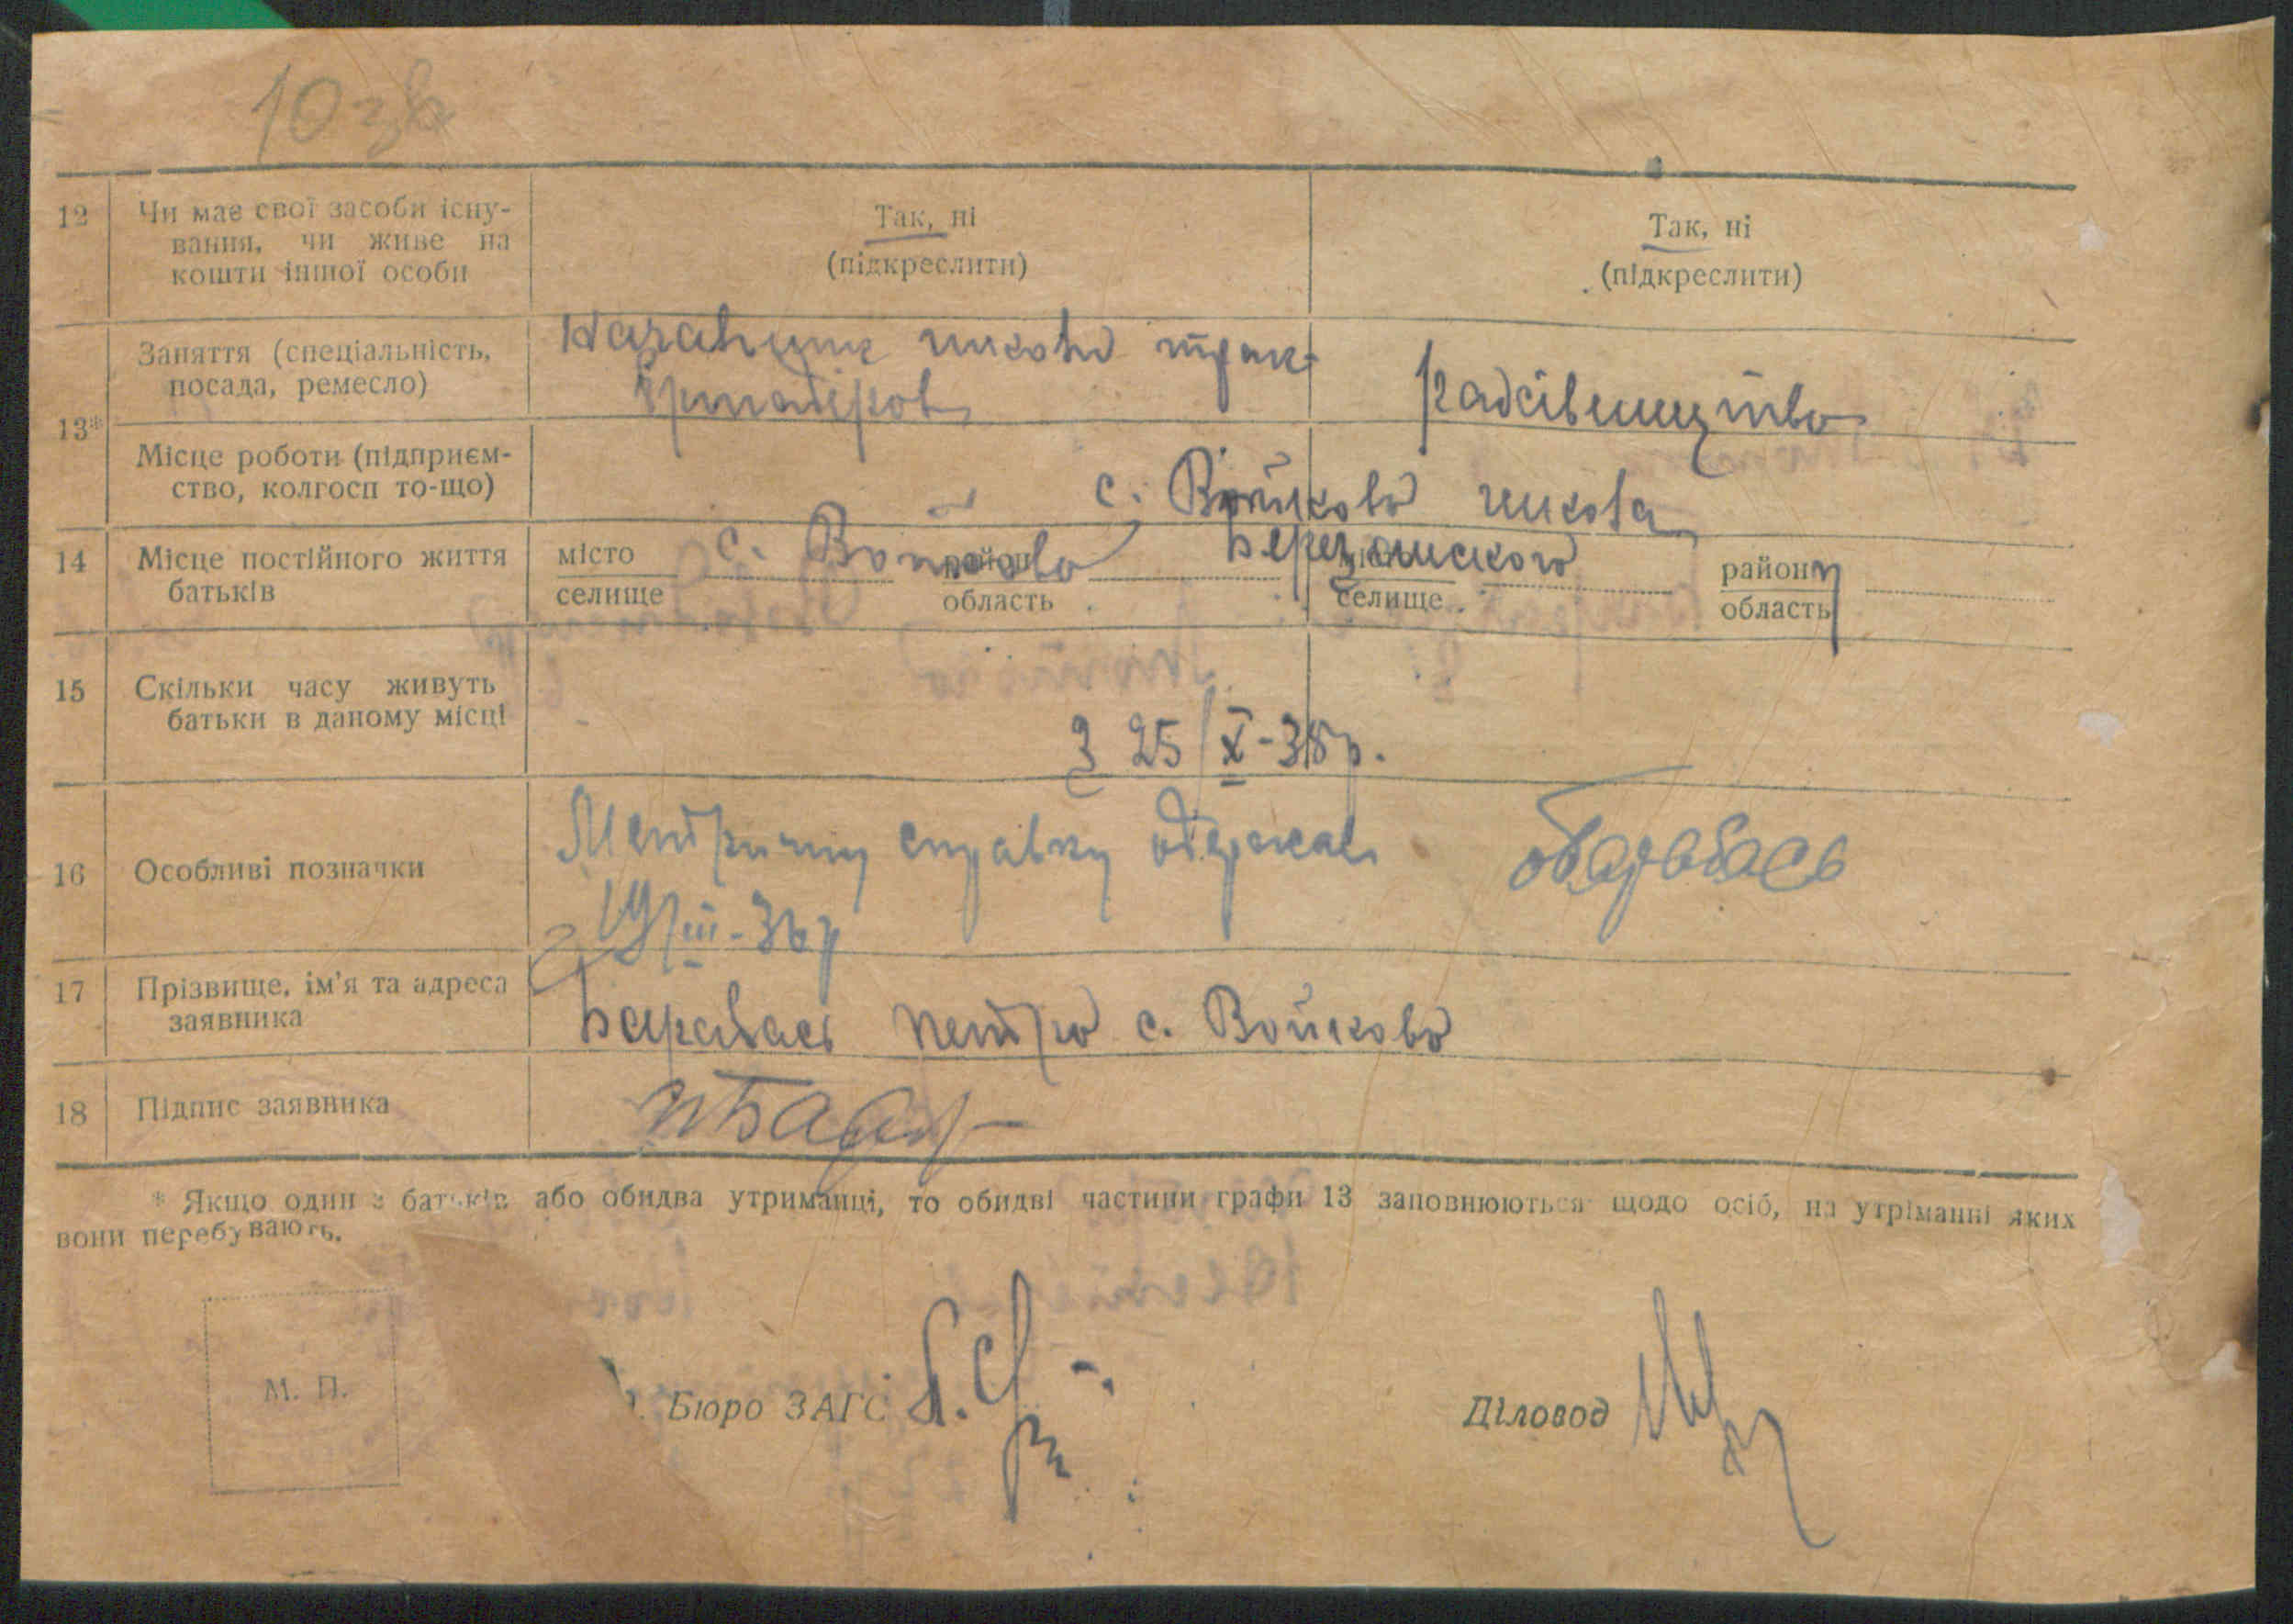 10 зв
12 Чи має свої засоби існу-
вання, чи живе на
кошти іншої особи
Так, ні
(підкреслити)
Так, ні
(підкреслити)
13* Заняття (спеціальність,
посада, ремесло)
школи
Радсівшицтво
Місце роботи (підприєм-
ство, колгосп то-що)
с. Войково школа
14 Місце постійного життя
батьків
місто
селище
район
область
с. Войково Березанского
селище
району
область
15 Скільки часу живуть
батьки в даному місці
З 25/X-35р.
16 Особливі позначки
Метричну справку одержав
19/III-36р
17 Прізвище, ім'я та адреса
заявника
Барабась Петро с. Войково
18 Підпис заявника
* Якщо один з батьків або обидва утриманці, то обидві частини графи 13 заповнюються щодо осіб, на утріманні яких
вони перебувають.
М. П.
Бюро ЗАГС
Діловод